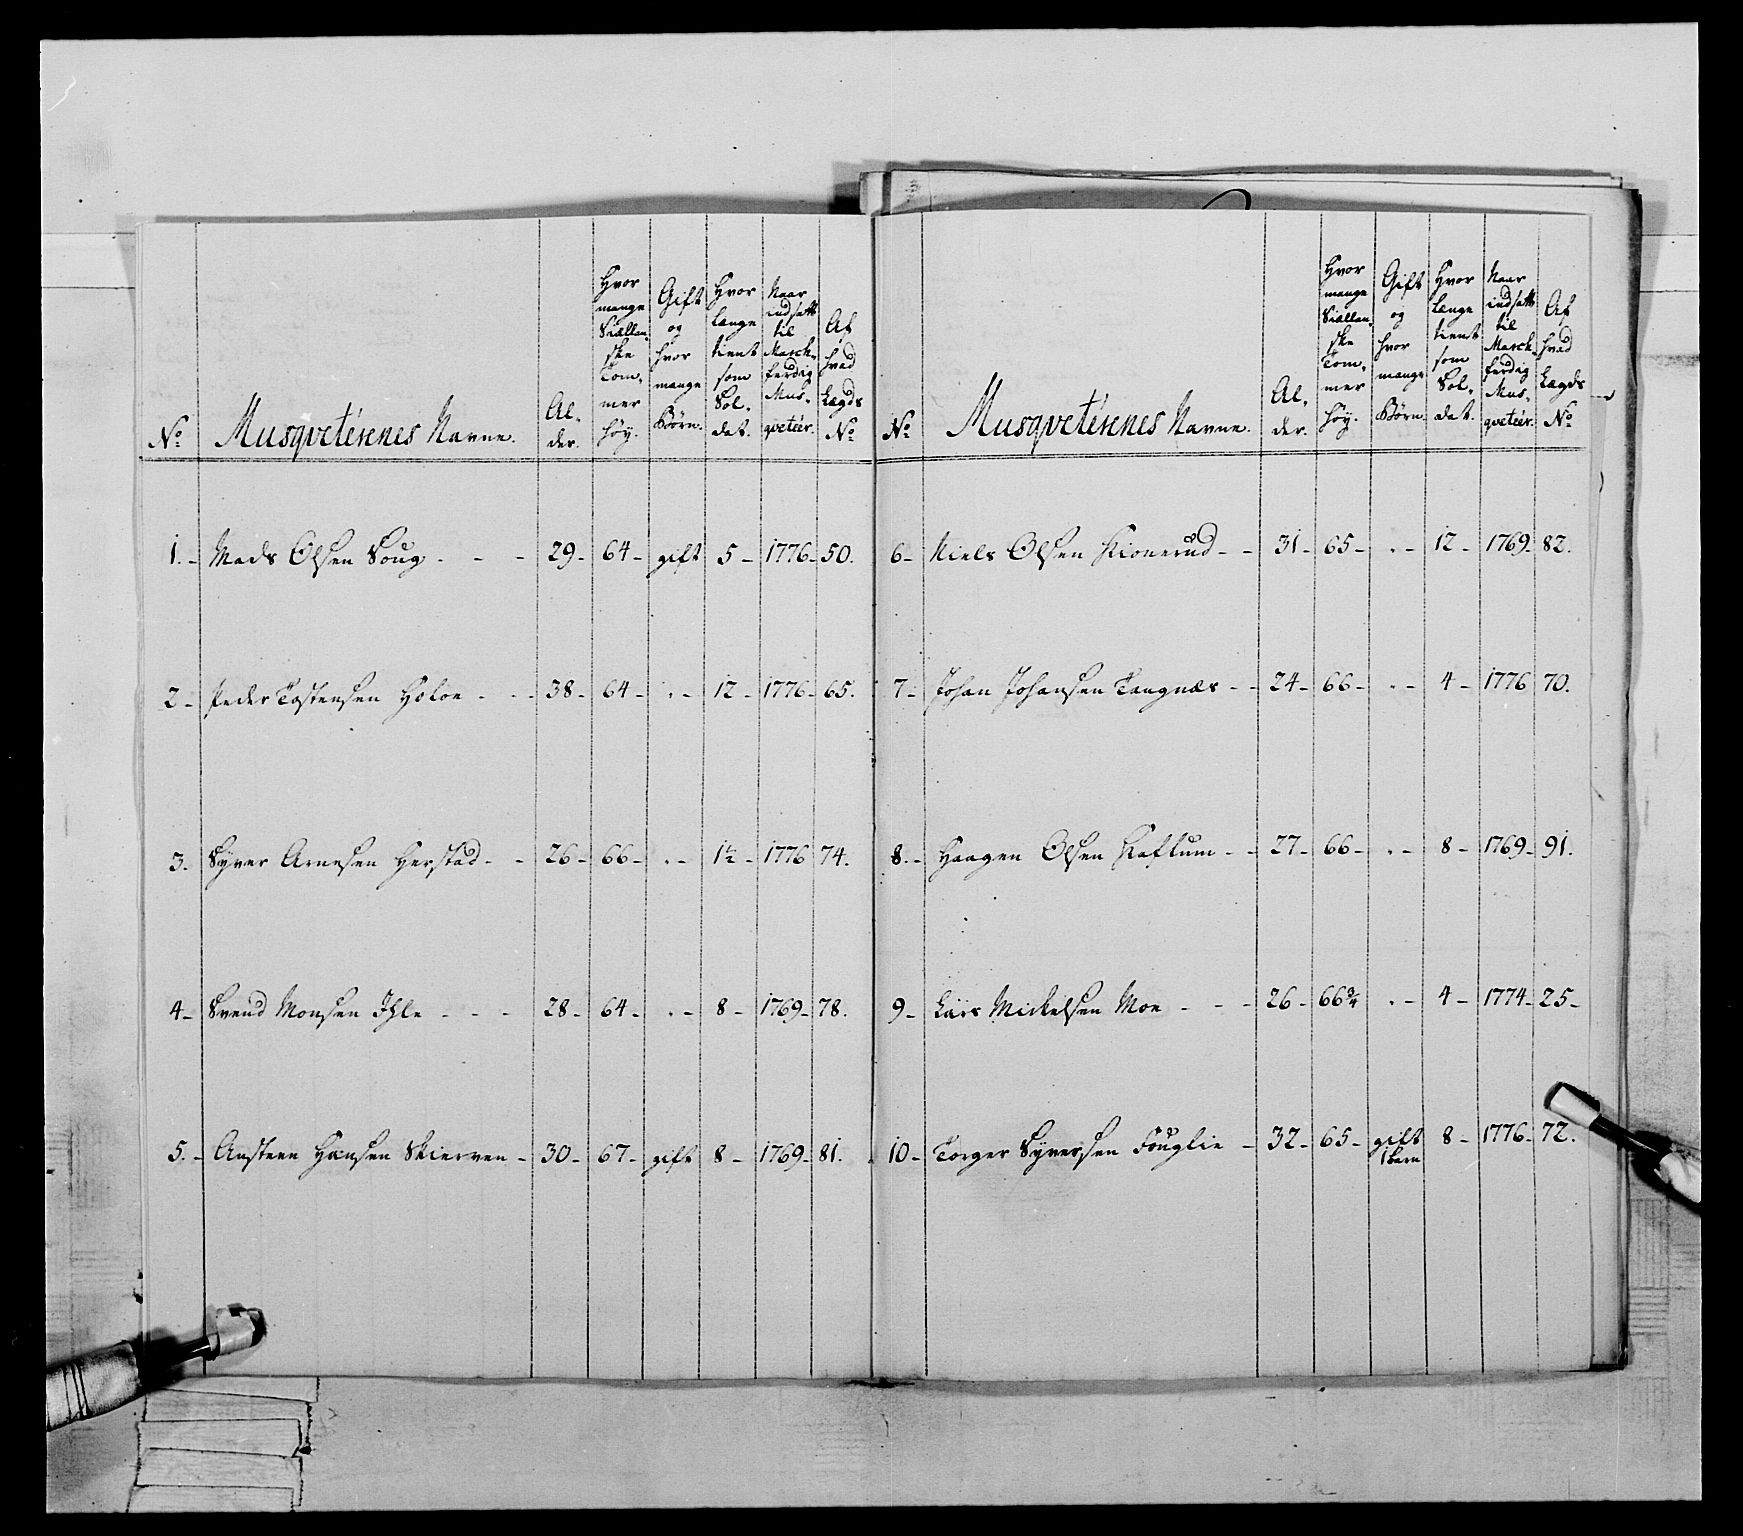 No
Musqveterernes Navne.
Al-
der.
Hvor
mange
Siællan-
ske
Tom-
mer
høy.
Gift
og
hvor
mange
Børn.
Hvor
længe
tient
som
Sol-
dat.
Naar
indsatt
til
March-
færdig
Mus-
qveteér.
Af
hvad
Lægds
No
1. - Mads Olsen Soug - - - 29 - 64 - gift 5 - 1776 - 50.
2 - Peder Tostensen - - 38 - 64 - . - 12 - 1776 - 65.
3. Syver Arnesen Herstad - - 26 - 66 - . - 1½ - 1776 74.
4 - Svend Monsen Ihle - - - 28 - 64 - . - 8 - 1769 - 78.
5. - Ansteen Hansen Skierven - 30 - 67 - gift 8 - 1769 - 81.
No
Musqveterernes Navne.
Al-
der.
Hvor
mange
Siællan-
ske
Tom-
mer
høy.
Gift
og
hvor
mange
Børn.
Hvor
længe
tient
som
Sol-
dat.
Naar
indsatt
til
March-
færdig
Mus-
qveteér.
Af
hvad
Lægds
No
6 - Niels Olsen Kionerud - - 31 - 65 - . - 12 - 1769 - 82.
7 - Johan Johansen Tangnæs - - 24 - 66 - . - 4 - 1776 70.
8. - Haagen Olsen Kaflum - - 27 - 66 - . - 8 - 1769 - 91.
9 - Lars Mickelsen Moe - - - 26 - 66¾ . - 4 - 1774 - 25 -
10 - Torger Syversen Fouglie - 32 - 65 - gift 8 - 1776 - 72.
1 barn